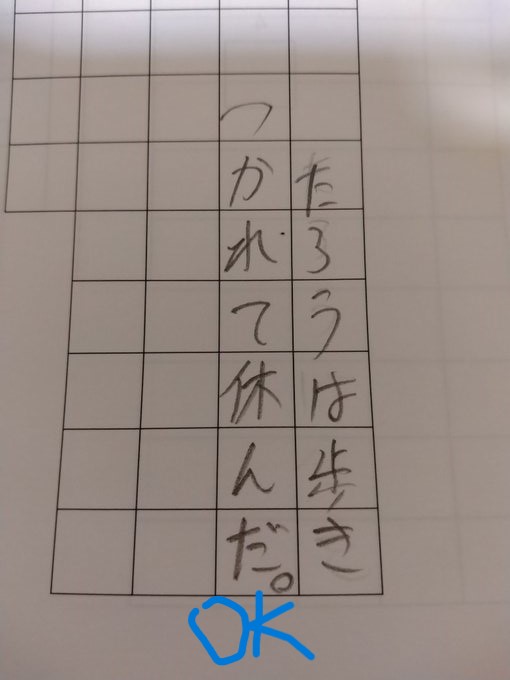 たろうは歩き
つかれて休んだ。
OK